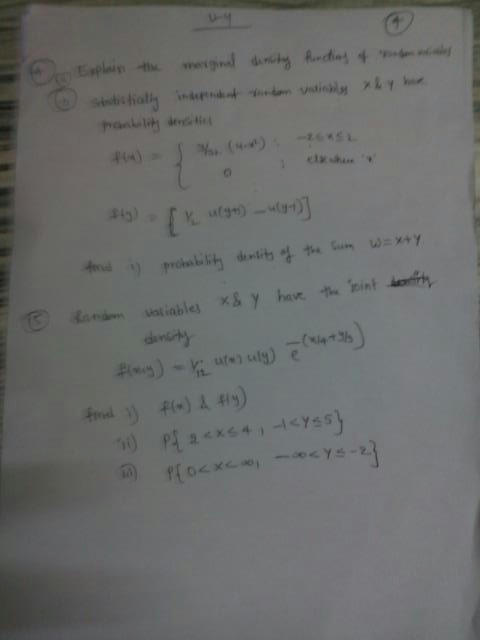 U-4
4
4 (a) Explain the marginal density functions of random variables
(b) statistically independent random variables x & y have
probability densities
f(x) = { 3/32 (4-x²) ; -2≤x≤2
0 ; elsewhere 'x'
f(y) = [ 1/2 u(y+1) - u(y-1)]
find i) probability density of the sum W=x+y
5 Random variables x & y have the joint
density
f(x,y) = 1/12 u(x) u(y) e^-(x/4+y/3)
find i) f(x) & f(y)
ii) P{ 2<x≤4, -1<Y≤5}
iii) P{0<x<∞, -∞<Y≤-2}